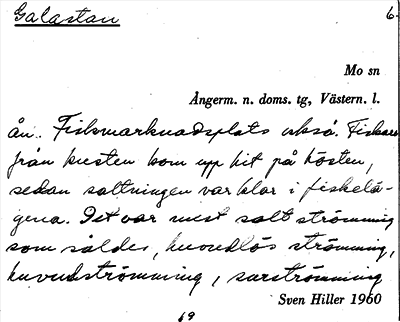 Galastan 6.
Mo sn
Ångerm. n. doms. tg, Västern. l.
ån. Fiskmarknadsplats också. Fiskare
från kusten kom upp hit på hösten,
sedan saltningen var klar i fiskelä-
gena. Det var mest salt strömming
som såldes, huvudlös strömming,
huvudströmming, surströmming
Sven Hiller 1960
69